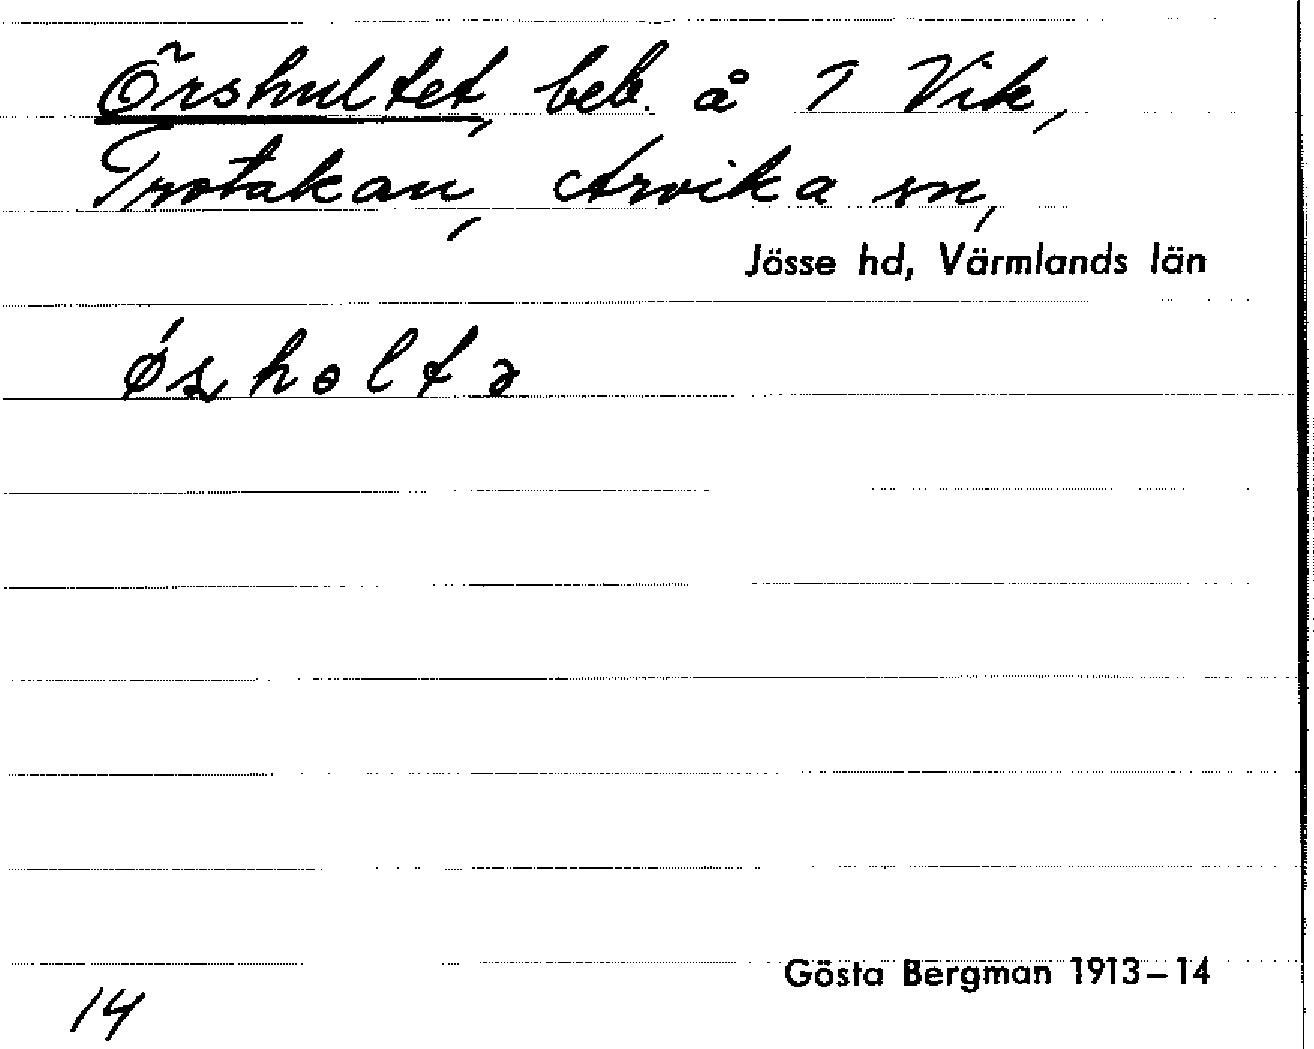 Örshultet, beb. å 7 Vik,
Trotakan, Arvika sn,
Jösse hd, Värmlands län
ǿʂholtə
Gösta Bergman 1913–14
14